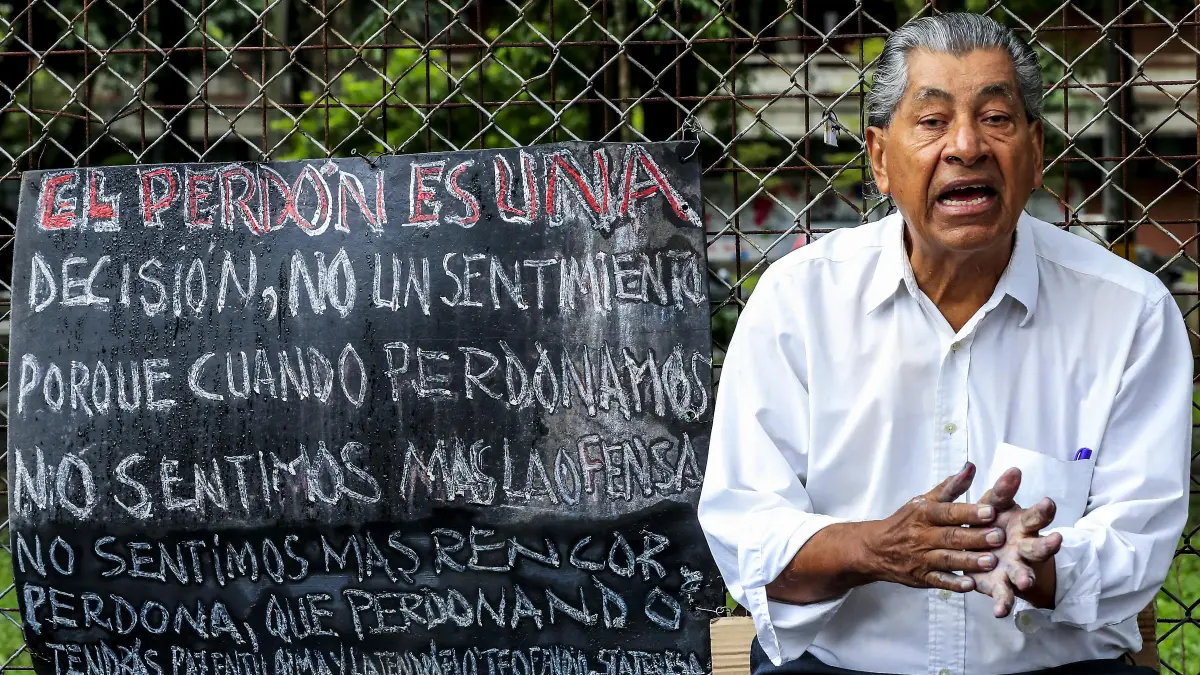 EL PERDÓN ES UNA
DECISIÓN, NO UN SENTIMIENTO
PORQUE CUANDO PERDONAMOS
NO SENTIMOS MAS LA OFENSA
NO SENTIMOS MAS RENCOR.
PERDONA, QUE PERDONANDO
TENDRÁS PAZ EN TU ALMA Y LA TENDRÁ